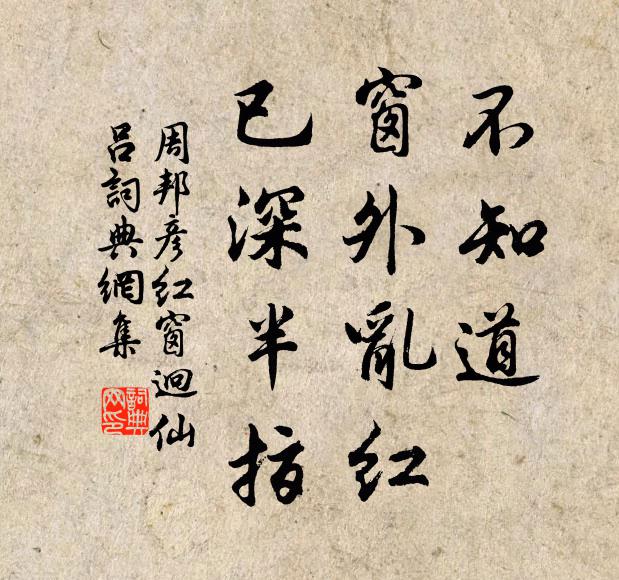 不知道
窗外亂紅
已深半指
周邦彥紅窗迥仙
呂詞典網集
詞典
网印